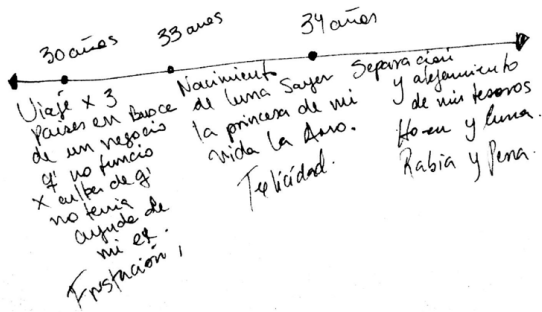 30 años
33 años
34 años
Viajé x 3
paises en busca
de un negocio
q' no funcio
x culpa de q'
no tenia
ayuda de
mi ex.
Frustación,
Nacimiento
de Luna
la princesa de mi
vida la Amo.
Felicidad.
Separación
y alejamiento
de mis tesoros
y Luna.
Rabia y Pena.